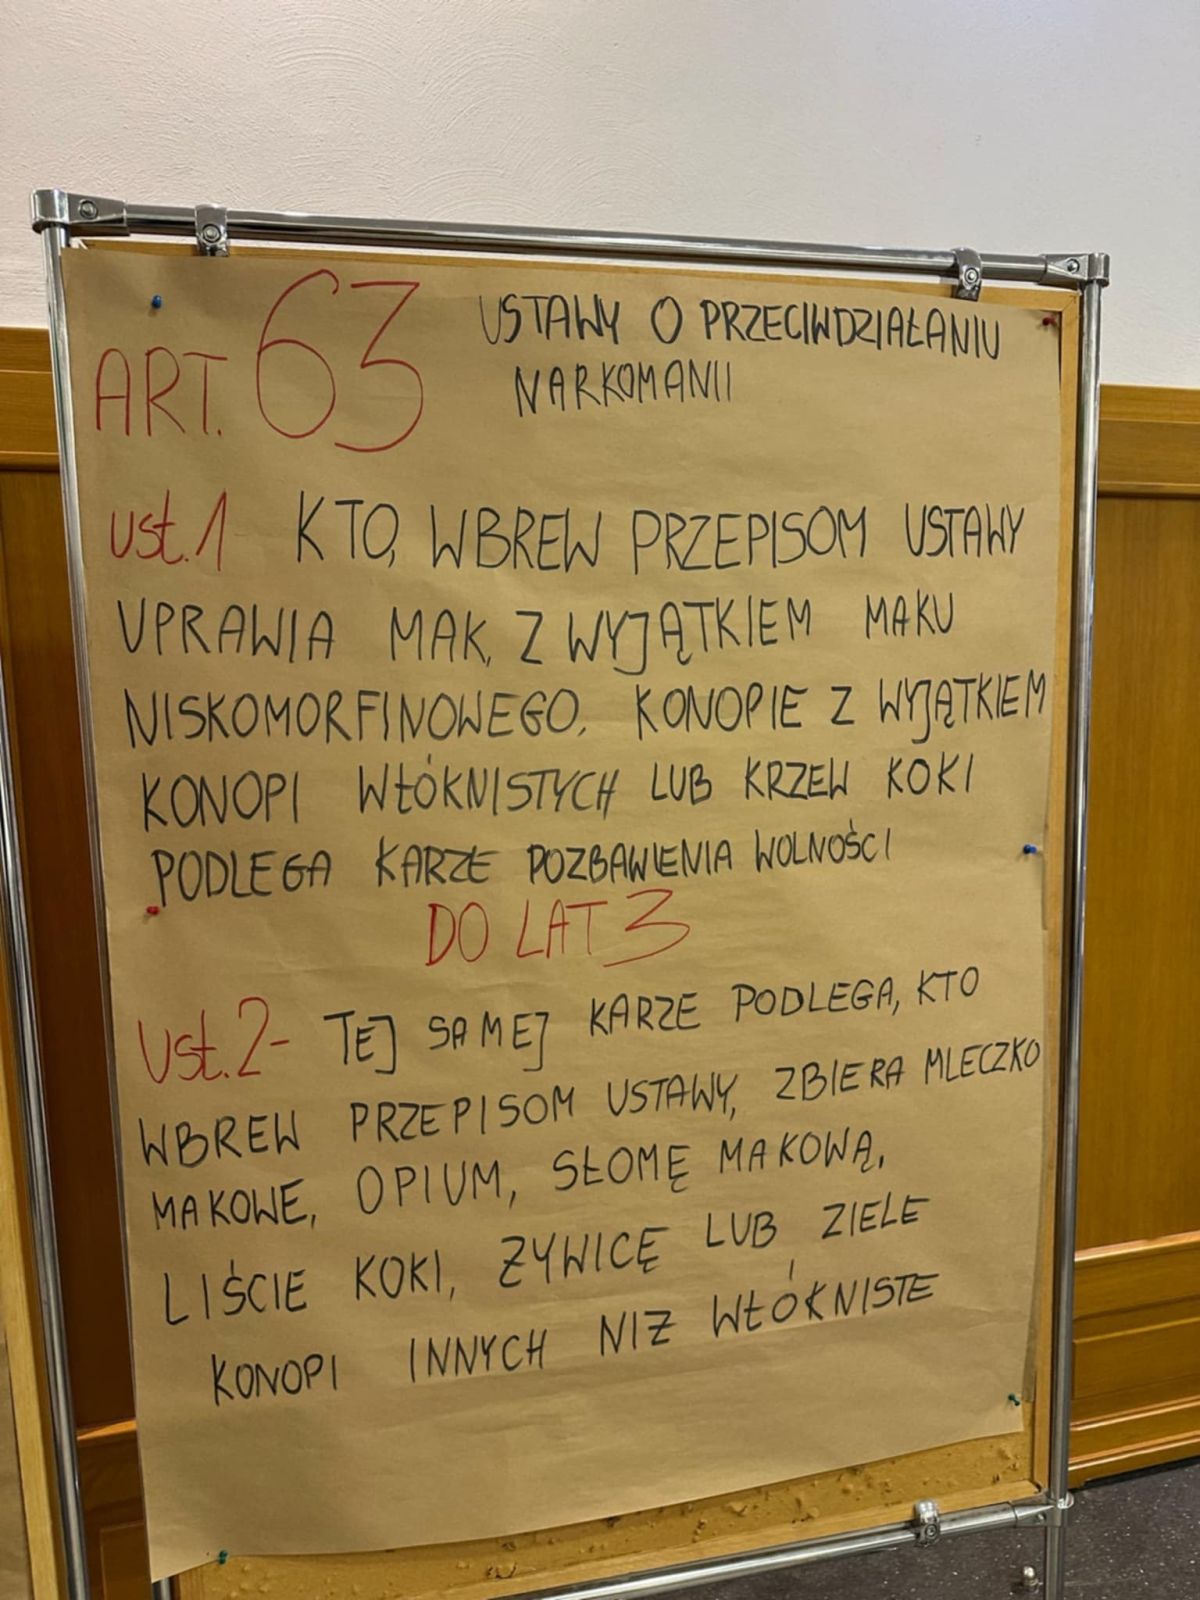 ART. 63 USTAWY O PRZECIWDZIAŁANIU
NARKOMANII
ust. 1 KTO, WBREW PRZEPISOM USTAWY
UPRAWIA MAK, Z WYJĄTKIEM MAKU
NISKOMORFINOWEGO, KONOPIE Z WYJĄTKIEM
KONOPI WŁÓKNISTYCH LUB KRZEW KOKI
PODLEGA KARZE POZBAWIENIA WOLNOŚCI
DO LAT 3
Ust. 2- TEJ SAMEJ KARZE PODLEGA, KTO
WBREW PRZEPISOM USTAWY, ZBIERA MLECZKO
MAKOWE, OPIUM, SŁOMĘ MAKOWĄ,
LIŚCIE KOKI, ŻYWICĘ LUB ZIELE
KONOPI INNYCH NIŻ WŁÓKNISTE